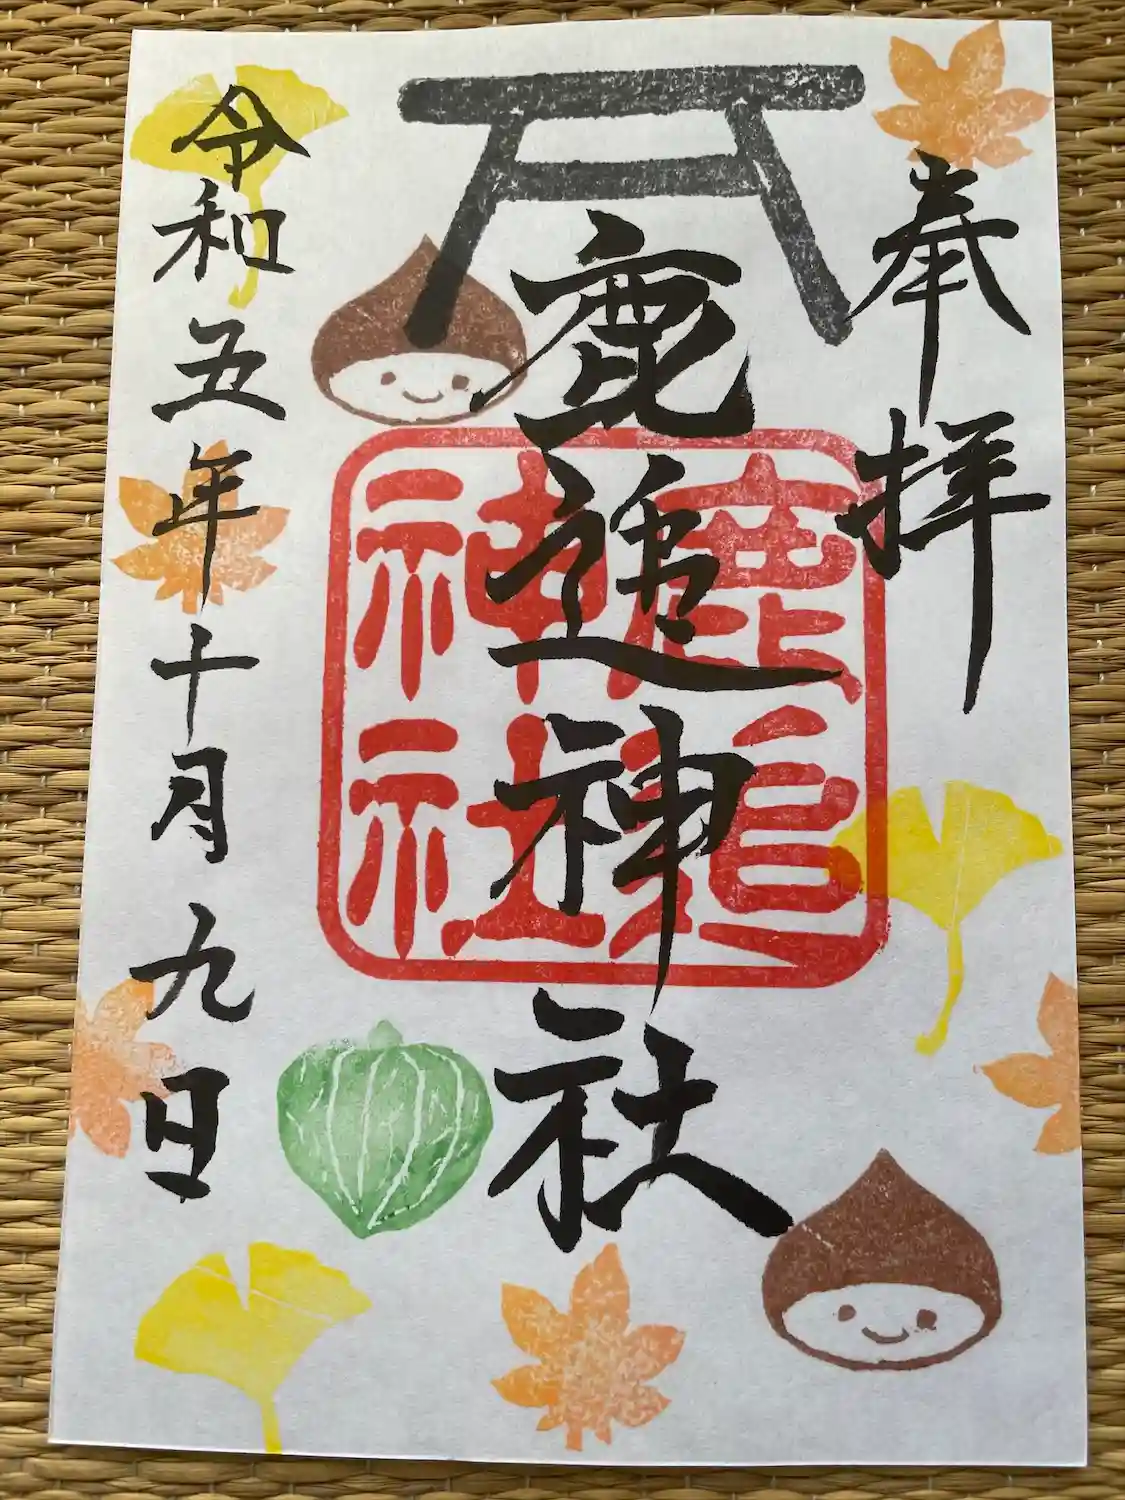 奉拝
鹿追神社
鹿追
神社
令和五年十月九日